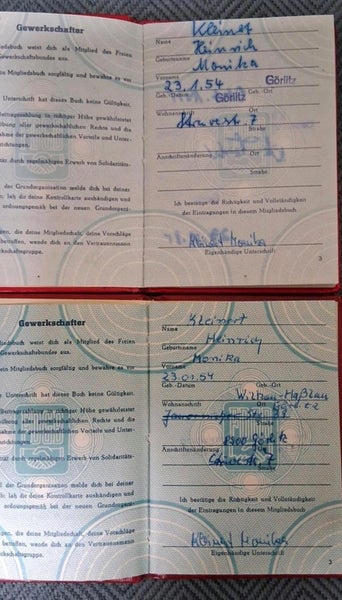 Gewerkschafter
dsbuch weist dich als Mitglied des Freien
Gewerkschaftsbundes aus.
ein Mitgliedsbuch sorgfältig und bewahre es vor
Unterschrift hat dieses Buch keine Gültigkeit.
Beitragszahlung in richtiger Höhe gewährleistet
aller gewerkschaftlichen Rechte und die
ahme der gewerkschaftlichen Vorteile und Unter-
durch regelmäßigen Erwerb von Solidaritäts-
der Grundorganisation melde dich bei deiner
ab; laß dir deine Kontrollkarte aushändigen und
ordnungsgemäß bei der neuen Grundorgani-
gen, die deine Mitgliedschaft, deine Vorschläge
betreffen, wende dich an den Vertrauensmann
Kleinert
Name
Heinrich
Geburtsname
Monika
Vorname
23.1.54 Görlitz
Geb.-Datum Geb.-Ort
Görlitz
Wohnanschrift Ort
Struvestr. 7
Straße
Anschriftenänderung Ort
Straße
Ich bestätige die Richtigkeit und Vollständigkeit
der Eintragungen in diesem Mitgliedsbuch
Kleinert Monika
Eigenhändige Unterschrift
3
Gewerkschafter
edsbuch weist dich als Mitglied des Freien
Gewerkschaftsbundes aus.
ein Mitgliedsbuch sorgfältig und bewahre es vor
Unterschrift hat dieses Buch keine Gültigkeit.
Beitragszahlung in richtiger Höhe gewährleistet
aller gewerkschaftlichen Rechte und die
ahme der gewerkschaftlichen Vorteile und Unter-
durch regelmäßigen Erwerb von Solidaritäts-
der Grundorganisation melde dich bei deiner
ab; laß dir deine Kontrollkarte aushändigen und
ordnungsgemäß bei der neuen Grundorgani-
gen, die deine Mitgliedschaft, deine Vorschläge
betreffen, wende dich an den Vertrauensmann
schaftsgruppe.
Kleinert
Name
Heinrich
Geburtsname
Monika
Vorname
23.01.54
Geb.-Datum Geb.-Ort
Wohnanschrift
8900 Görlitz
Struvestr. 7
Straße
Ich bestätige die Richtigkeit und Vollständigkeit
der Eintragungen in diesem Mitgliedsbuch
Kleinert Monika
Eigenhändige Unterschrift
3